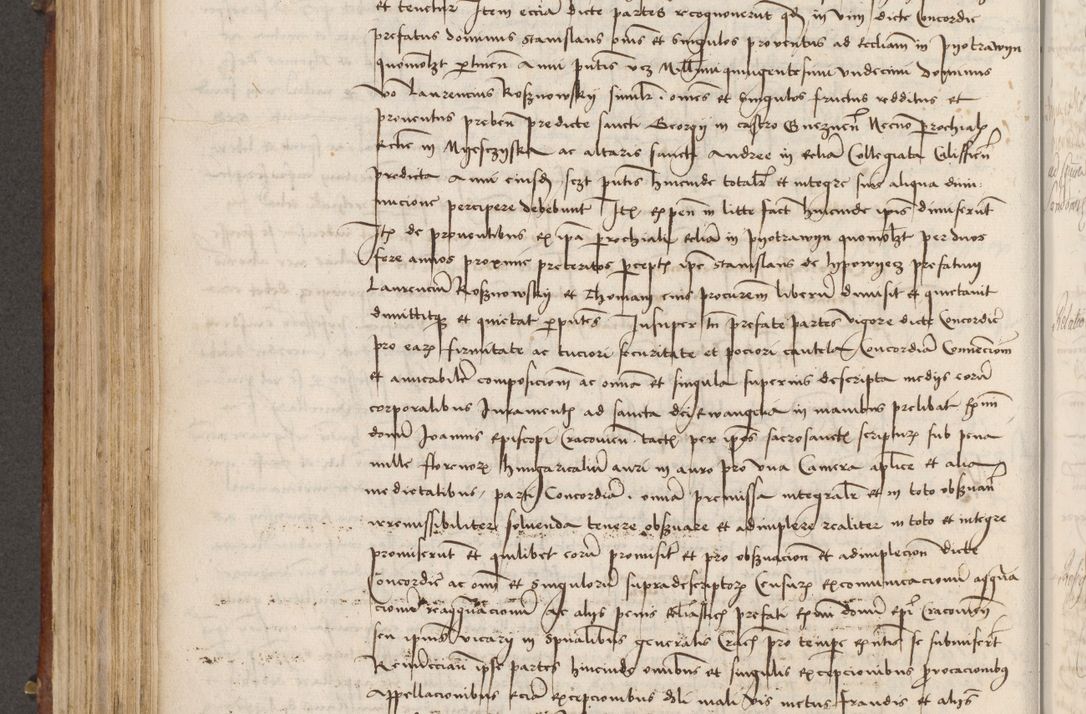 et tenetur Item eciam dicte partes recognoverunt qd in vim dicte Concordie
prefatus dominus Stanislaus omes et singulos proventus ad eccliam in pyotrawyn
quomolzt ptinen Anni pntis vcz Millimi quingentesimi undecimi dominus
vo Laurencius Rosznowsky similr omes et singulos fructus redditus et
proventus preben predicte sancti Georgii in castro Gneznen Necno prochial
Ecclie in Myesczyska ac altaris sancti Andree in ecclia Collegiata
predicta Anni eiusd sczt pntis hincinde totalr et integre sine aliqua dimi
nucione percipere debebunt Itz expen in lite fact hincinde ipis dimiserut
Itz de proventibus ex ipa prochiali ecclia in pyotrawyn quomolzt per duos
fere annos proxime preteritos percept ipe Stanislaus de lypowyecz prefatum
Laurenciu Rosznowsky et Thomam eius procurem liberu dimisit et quietavit
dimittitq et quietat p pntes Insuper tn prefate partes vigore dicte Concordie
pro earz firmitate ac tuciori securitate et pociori cautela Concordia Convencionem
et amicabile composicionem ac omia et singula superius descripta medys eoru
corporalibus Juramentz ad sancta dei ewangelia in manibus prelibat
domi Joannis episcopi Cracovien tactz per ipos sacrosanctz scripturz sub pena
mille florenorz hungaricaliu auri in auro pro una Camera aplice et alia
medietatibus parti Concordia omia premissa integralr et in toto obsvan
irremissibiliter solvenda tenere obsvare et adimplere realiter in toto et integre
promiserut et quilibet eoru promisit et pro obsvacion et adimplecion dicte
Concordie ac omi et singuloru supradescriptorz Censurz excomunicacionu aggva
cionu reaggvacionu Ac alys penis eccliasticz prefati domi Epi Cracovien
seu ipius vicarii in spualibus generalis pro tempe exntis se submiserut
Renuncian ipse partes hincinde omibus et singulis excepcionibus provocacionibus
Appellacionibus eciam excepcionibus doli mali vis metus fraudis et alys